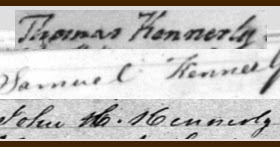 Thomas Kennerly
Samuel Kennerly
John H. Kennerly